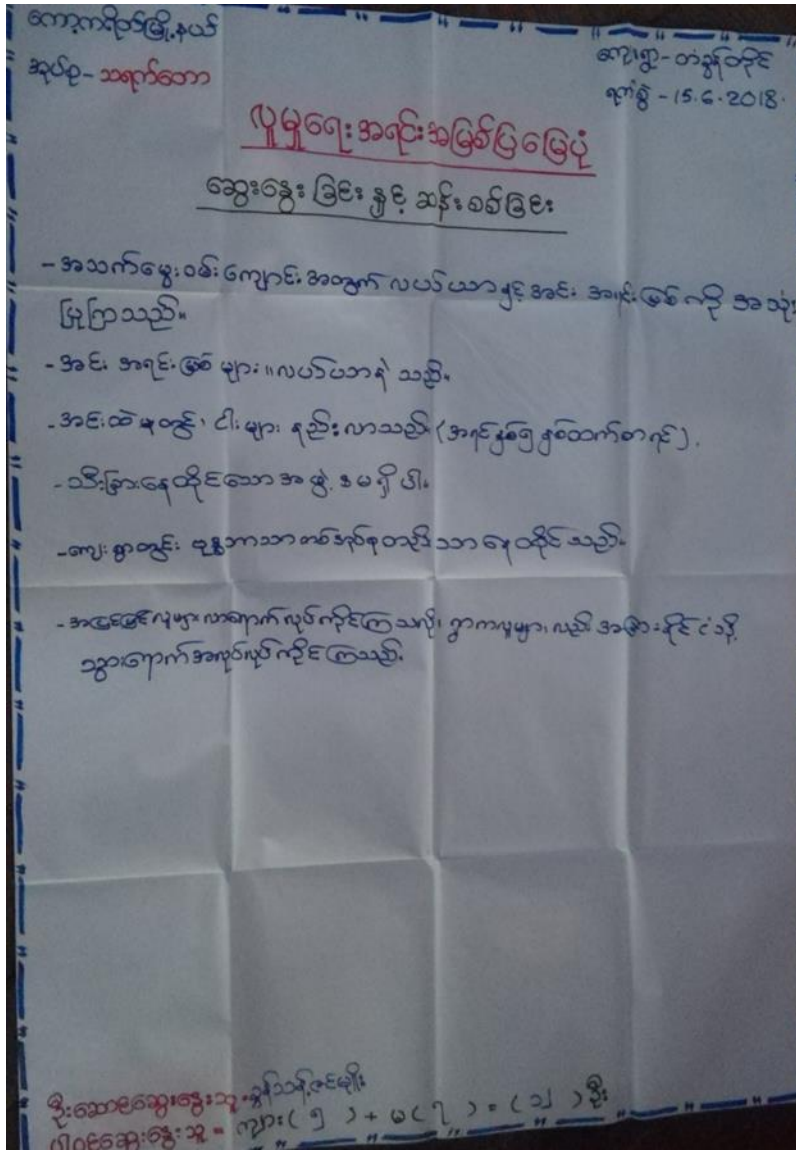 ကော့ကရိတ်မြို့နယ်
ကျေးရွာ-တံခွန်တိုင်
အုပ်စု-သရက်တော
ရက်စွဲ - 15.6.2018.
လူမှုရေးအရင်းအမြစ်ပြမြေပုံ
ဆွေးနွေးခြင်းနှင့် ဆန်းစစ်ခြင်း
-အသက်မွေးဝမ်းကျောင်းအတွက် လယ်ယာနှင့်အင်း အရင်းမြစ်ကို အသုံး
ပြုကြသည်။
-အင်း အရင်းမြစ် များ။လယ်ပဘနဲ သည်။
-အင်းထဲမှတွင်၊ ငါးများ နည်းလာသည် (အရင်နှစ်၅နှစ်ထက်စာရင်).
-သီးခြားနေထိုင်သောအဖွဲ့ ဒမရှိပါ။
-ကျေးရွာတွင်း ဗုဒ္ဓဘာသာတစ်အုပ်စုတည်းသာနေထိုင်သည်။
-အပြင်မြင်လူများလာရောက်လုပ်ကိုင်ကြသလို၊ ရွာကလူများလည်း အခြားနိုင်ငံသို့
သွားရောက်အလုပ်လုပ်ကိုင်ကြသည်.
ဦးဆောင်ဆွေးနွေးသူ-ခွန်သန့်ဇင်မျိုး
ပါဝင်ဆွေးနွေးသူ = ကျား(၅) + မ(၇) = (၁၂)ဦး